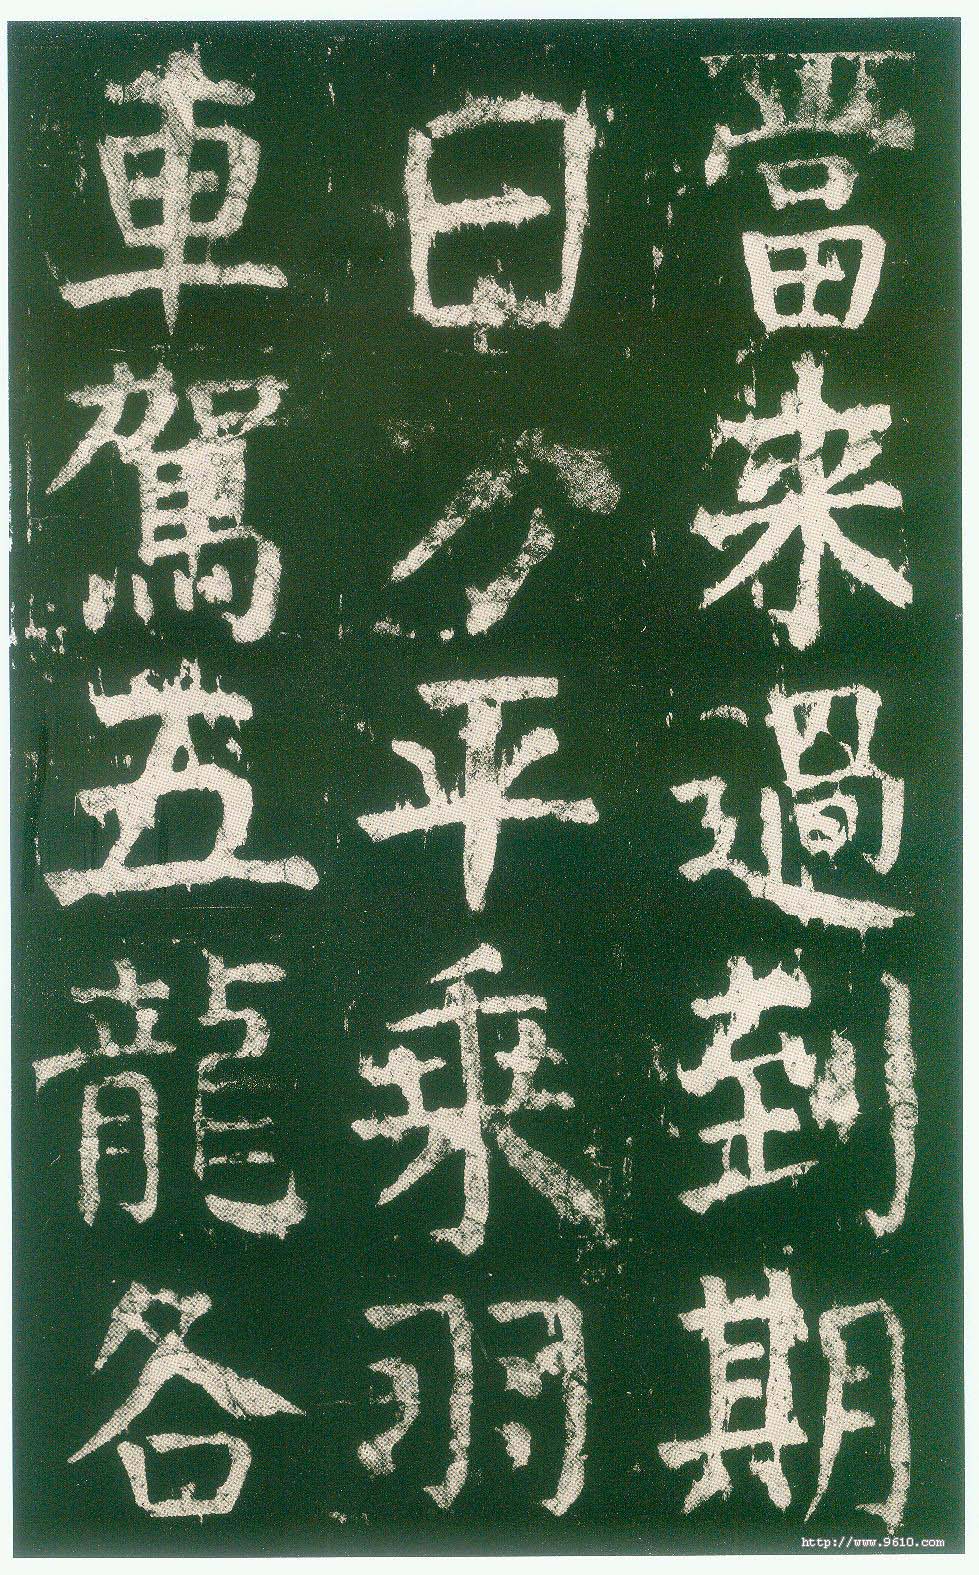 當來過到期
日方平乘羽
車駕五龍各
http://www.9610.com